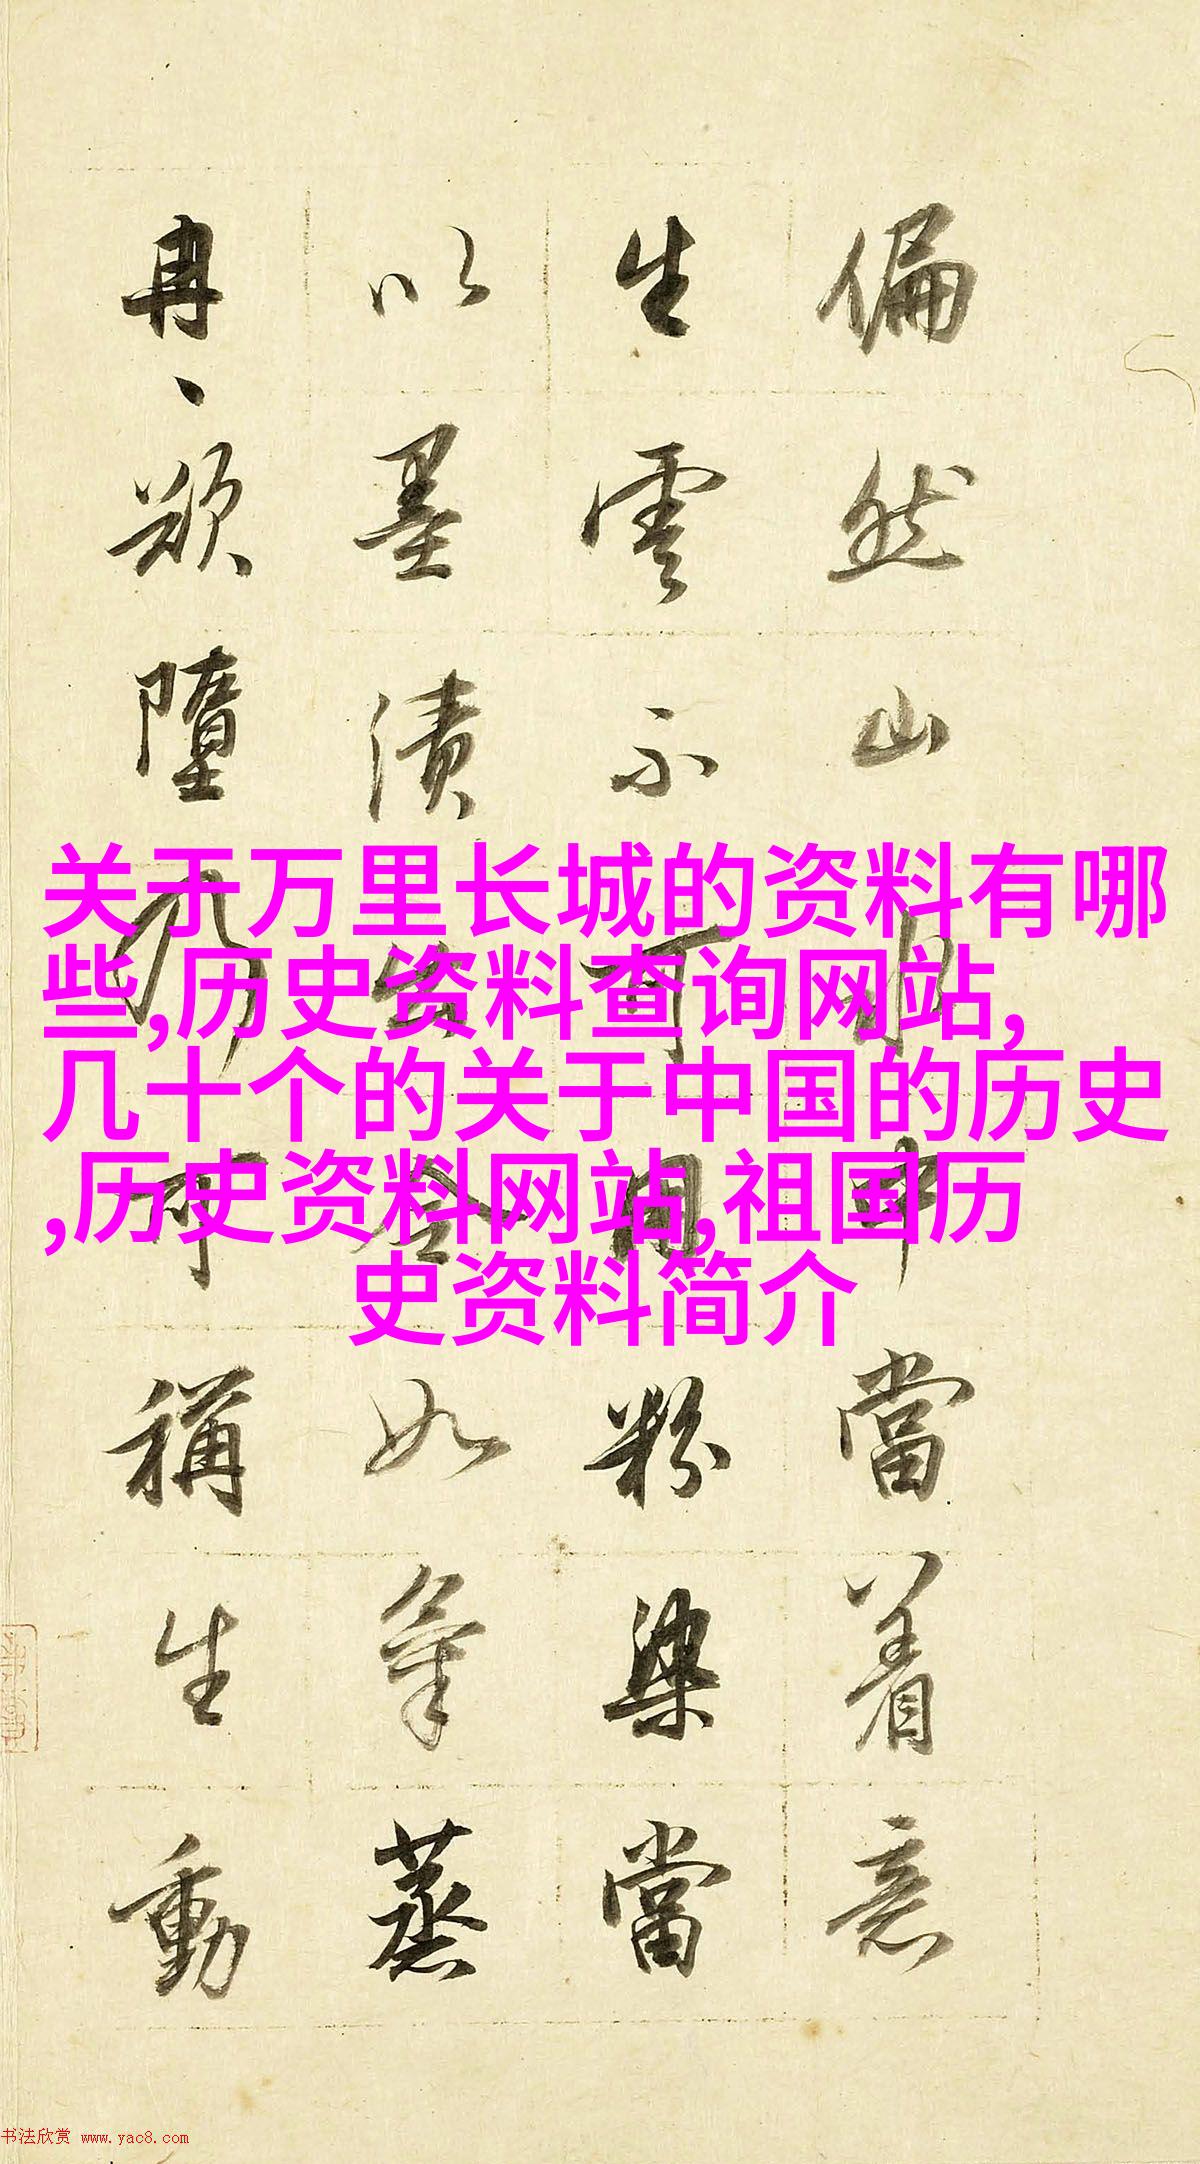 偏然山水中當着意
生雲不可用粉染當
以墨漬出令如氣蒸
冉、欲墮乃可稱生動
关于万里长城的资料有哪
些,历史资料查询网站,
几十个的关于中国的历史
,历史资料网站,祖国历
史资料简介
书法欣赏 www.yac8.com